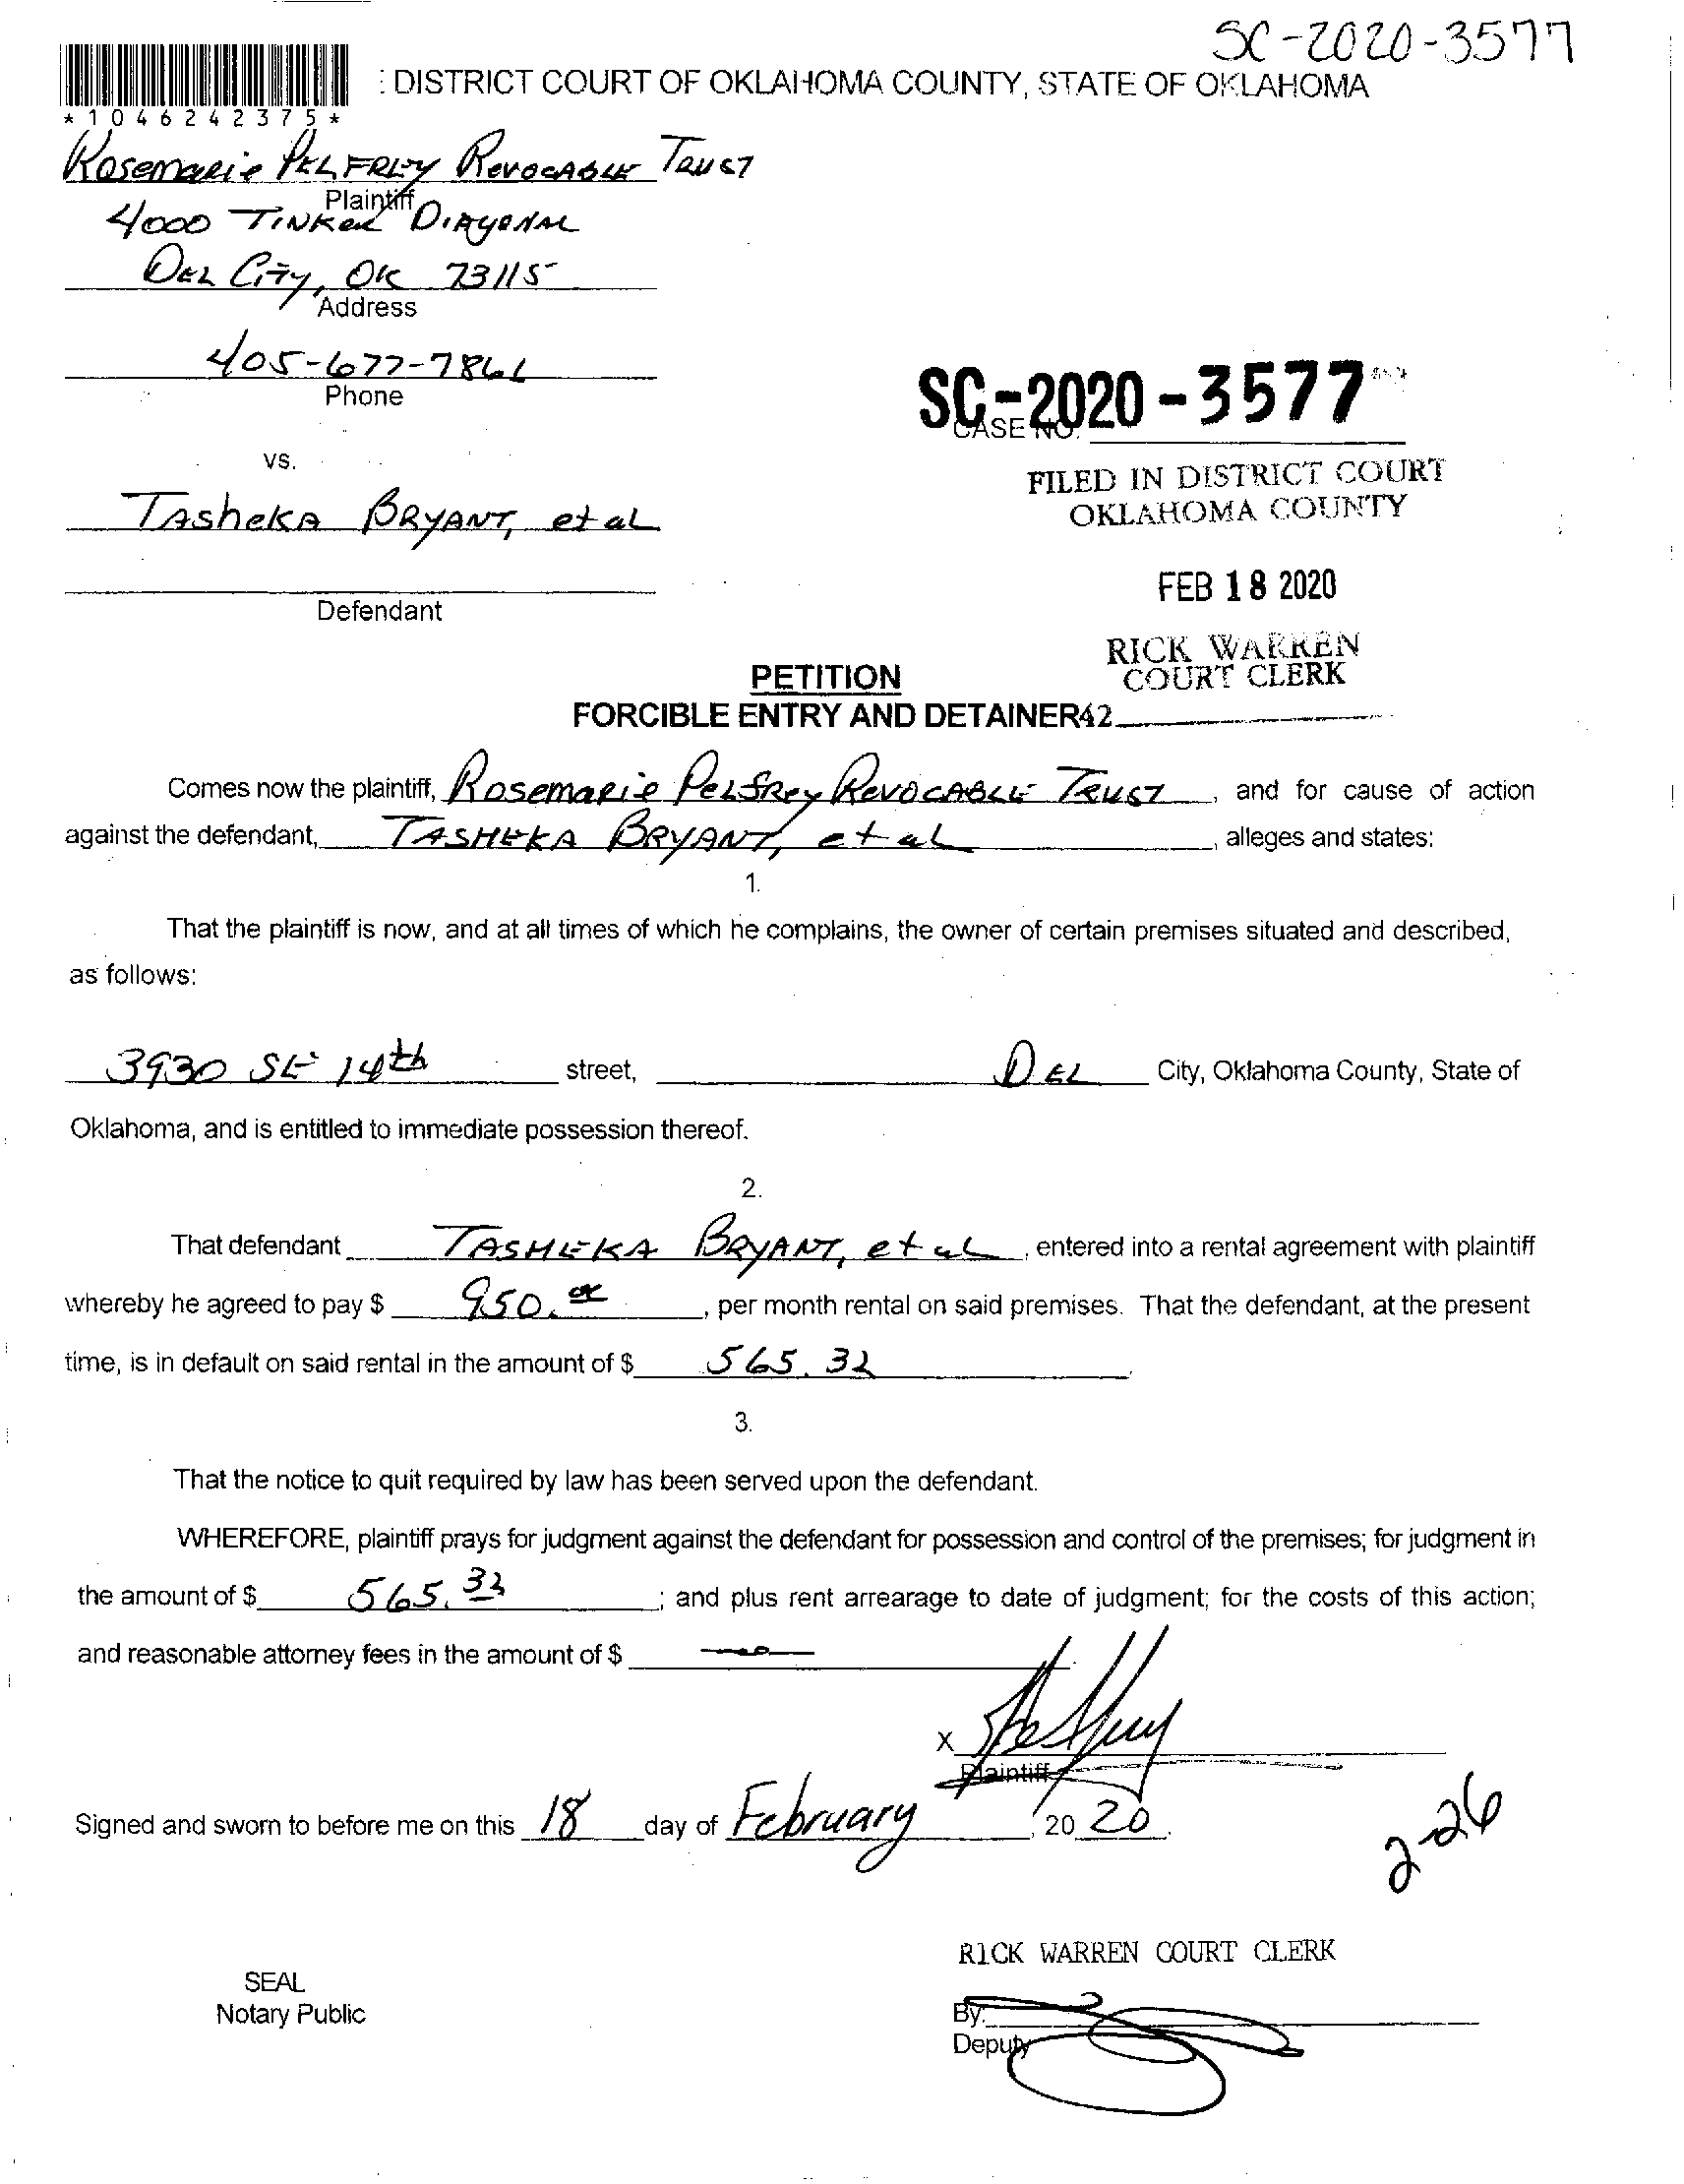 SC-2020-3577
: DISTRICT COURT OF OKLAHOMA COUNTY, STATE OF OKLAHOMA
*1046242375*
Rosemarie PELFREY REVOCABLE TRUST
Plaintiff
4000 TINKER DIAGONAL
DEL CITY, OK 73115
Address
405-677-7861
Phone
SC-2020-3577
CASE NO.
vs.
FILED IN DISTRICT COURT
OKLAHOMA COUNTY
TAsheKA BRYANT, et al
FEB 18 2020
Defendant
RICK WARREN
COURT CLERK
PETITION
FORCIBLE ENTRY AND DETAINER42
Comes now the plaintiff, Rosemarie Pelfrey REVOCABLE TRUST, and for cause of action
against the defendant, TASHEKA BRYANT, et al, alleges and states:
1.
That the plaintiff is now, and at all times of which he complains, the owner of certain premises situated and described,
as follows:
3930 SE 14th street, DEL City, Oklahoma County, State of
Oklahoma, and is entitled to immediate possession thereof.
2.
That defendant TASHEKA BRYANT, et al, entered into a rental agreement with plaintiff
whereby he agreed to pay $ 950.00, per month rental on said premises. That the defendant, at the present
time, is in default on said rental in the amount of $ 565.32.
3.
That the notice to quit required by law has been served upon the defendant.
WHEREFORE, plaintiff prays for judgment against the defendant for possession and control of the premises; for judgment in
the amount of $ 565.32; and plus rent arrearage to date of judgment; for the costs of this action;
and reasonable attorney fees in the amount of $
X
Plaintiff
Signed and sworn to before me on this 18 day of February, 20 20.
2-26
RICK WARREN COURT CLERK
SEAL
Notary Public
By:
Deputy